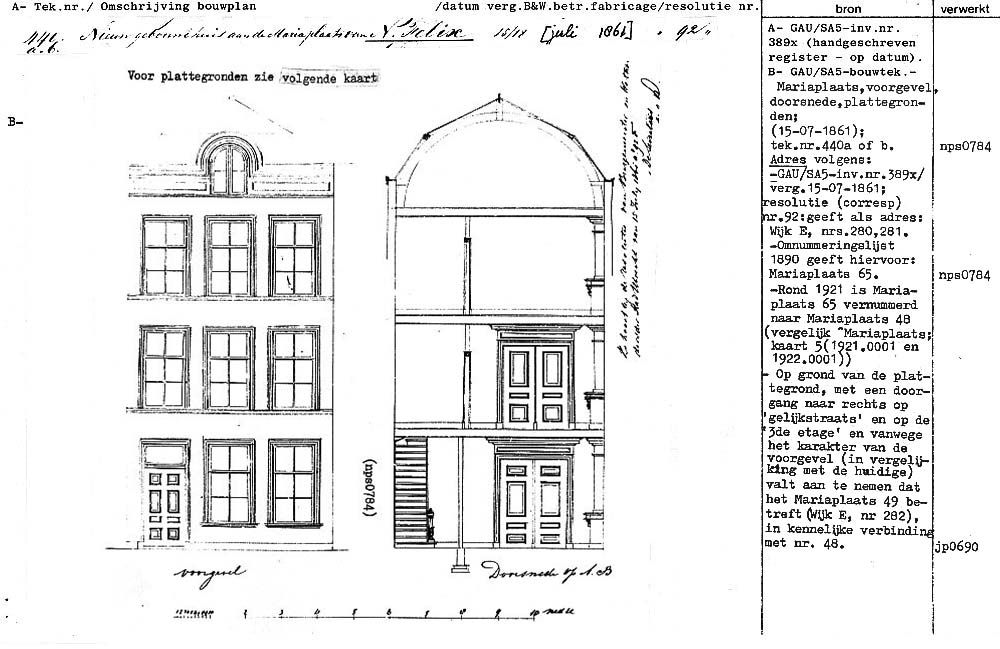 A- Tek.nr./ Omschrijving bouwplan /datum verg.B&W.betr.fabricage/resolutie nr.
bron
verwerkt
440. Nieuw gebouwd huis aan de Mariaplaats van N. Felix 15/18 [juli 1861] " 92 "
a.b.
Voor plattegronden zie volgende kaart
B-
(nps0784)
voorgevel
Doorsnede op A.B
1 2 3 4 5 6 7 8 9 10
A- GAU/SA5-inv.nr.
389x (handgeschreven
register - op datum).
B- GAU/SA5-bouwtek.-
Mariaplaats,voorgevel,
doorsnede,plattegron-
den;
(15-07-1861);
tek.nr.440a of b.
nps0784
Adres volgens:
-GAU/SA5-inv.nr.389x/
verg.15-07-1861;
resolutie (corresp)
nr.92:geeft als adres:
Wijk E, nrs.280,281.
-Omnummeringslijst
1890 geeft hiervoor:
Mariaplaats 65.
nps0784
-Rond 1921 is Maria-
plaats 65 vernummerd
naar Mariaplaats 48
(vergelijk "Mariaplaats;
kaart 5(1921.0001 en
1922.0001))
- Op grond van de plat-
tegrond, met een door-
gang naar rechts op
'gelijkstraats' en op de
'3de etage' en vanwege
het karakter van de
voorgevel (in vergelij-
king met de huidige)
valt aan te nemen dat
het Mariaplaats 49 be-
treft (Wijk E, nr 282),
in kennelijke verbinding
met nr. 48.
jp0690